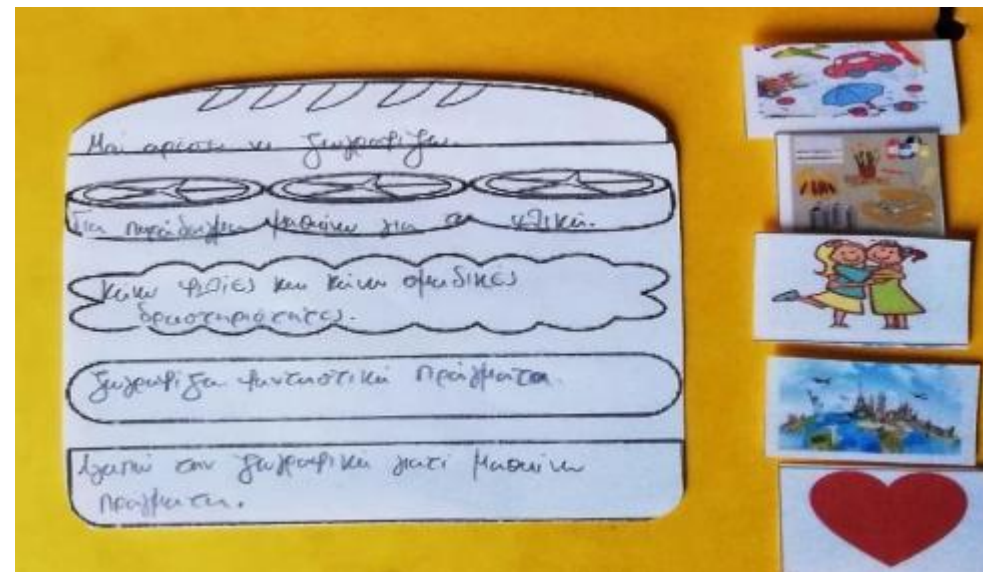 Μου αρέσει να ζωγραφίζω.
Για παράδειγμα μαθαίνω για τα υλικά.
Κάνω φιλίες και κάνω ομαδικές
δραστηριότητες.
ζωγραφίζω φανταστικά πράγματα.
Αγαπώ την ζωγραφική γιατί μαθαίνω
πράγματα.